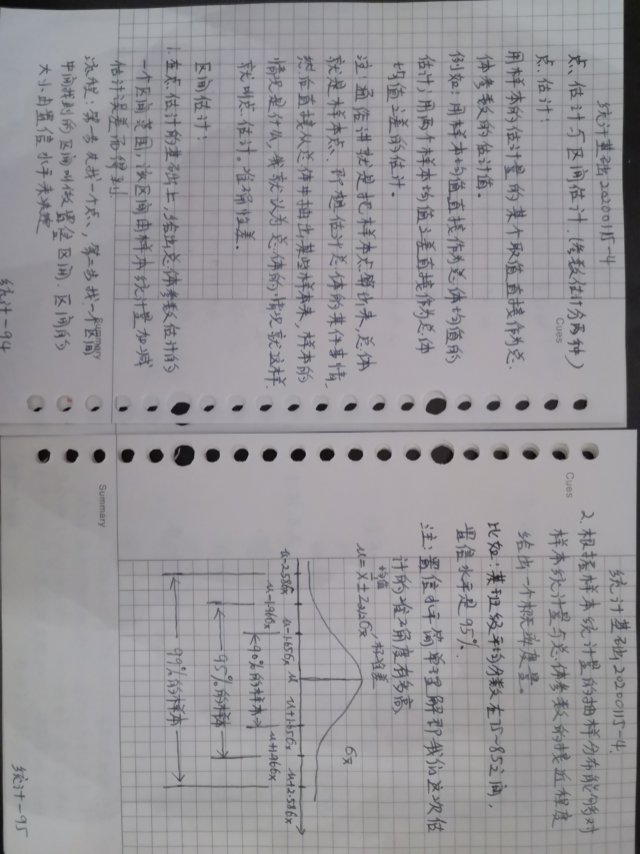 统计基础20200115-4
Cues
点、估计与区间估计.(参数估计分两种)
点、估计:
用样本的估计量的某个取值直接作为总
体参数的估计值。
例如:用样本均值直接作为总体均值的
估计;用两个样本均值之差直接作为总体
均值之差的估计.
注:通俗讲就是把样本点算出来,总体
就是样本点、即想估计总体的某件事情,
然后直接从总体中抽出某些样本来,样本的
情况是什么,我就认为总体的情况就这样.
就叫点估计。准确性差.
区间估计:
1.在点估计的基础上,给出总体参数估计的
一个区间范围,该区间由样本统计量加减
估计误差而得到
Summary
流程:第一步先找一个点、,第二步找一个区间
中间找到的区间叫做置信区间.区间的
大小由置信水平来决定
统计-94
统计基础20200115-4.
Cues
2.根据样本统计量的抽样分布能够对
样本统计量与总体参数的接近程度
给出一个概率度量。
比如:某班级平均分数在75~85之间,
置信水平是95%.
注:置信水平简单理解即我们这次估
计的准确度有多高
标准差
均值
u-2.58σx
u-1.96σx
u-1.65σx
u
u+1.65σx
u+1.96σx
u+2.58σx
σx
90%的样本
95%的样本
99%的样本
Summary
统计-95